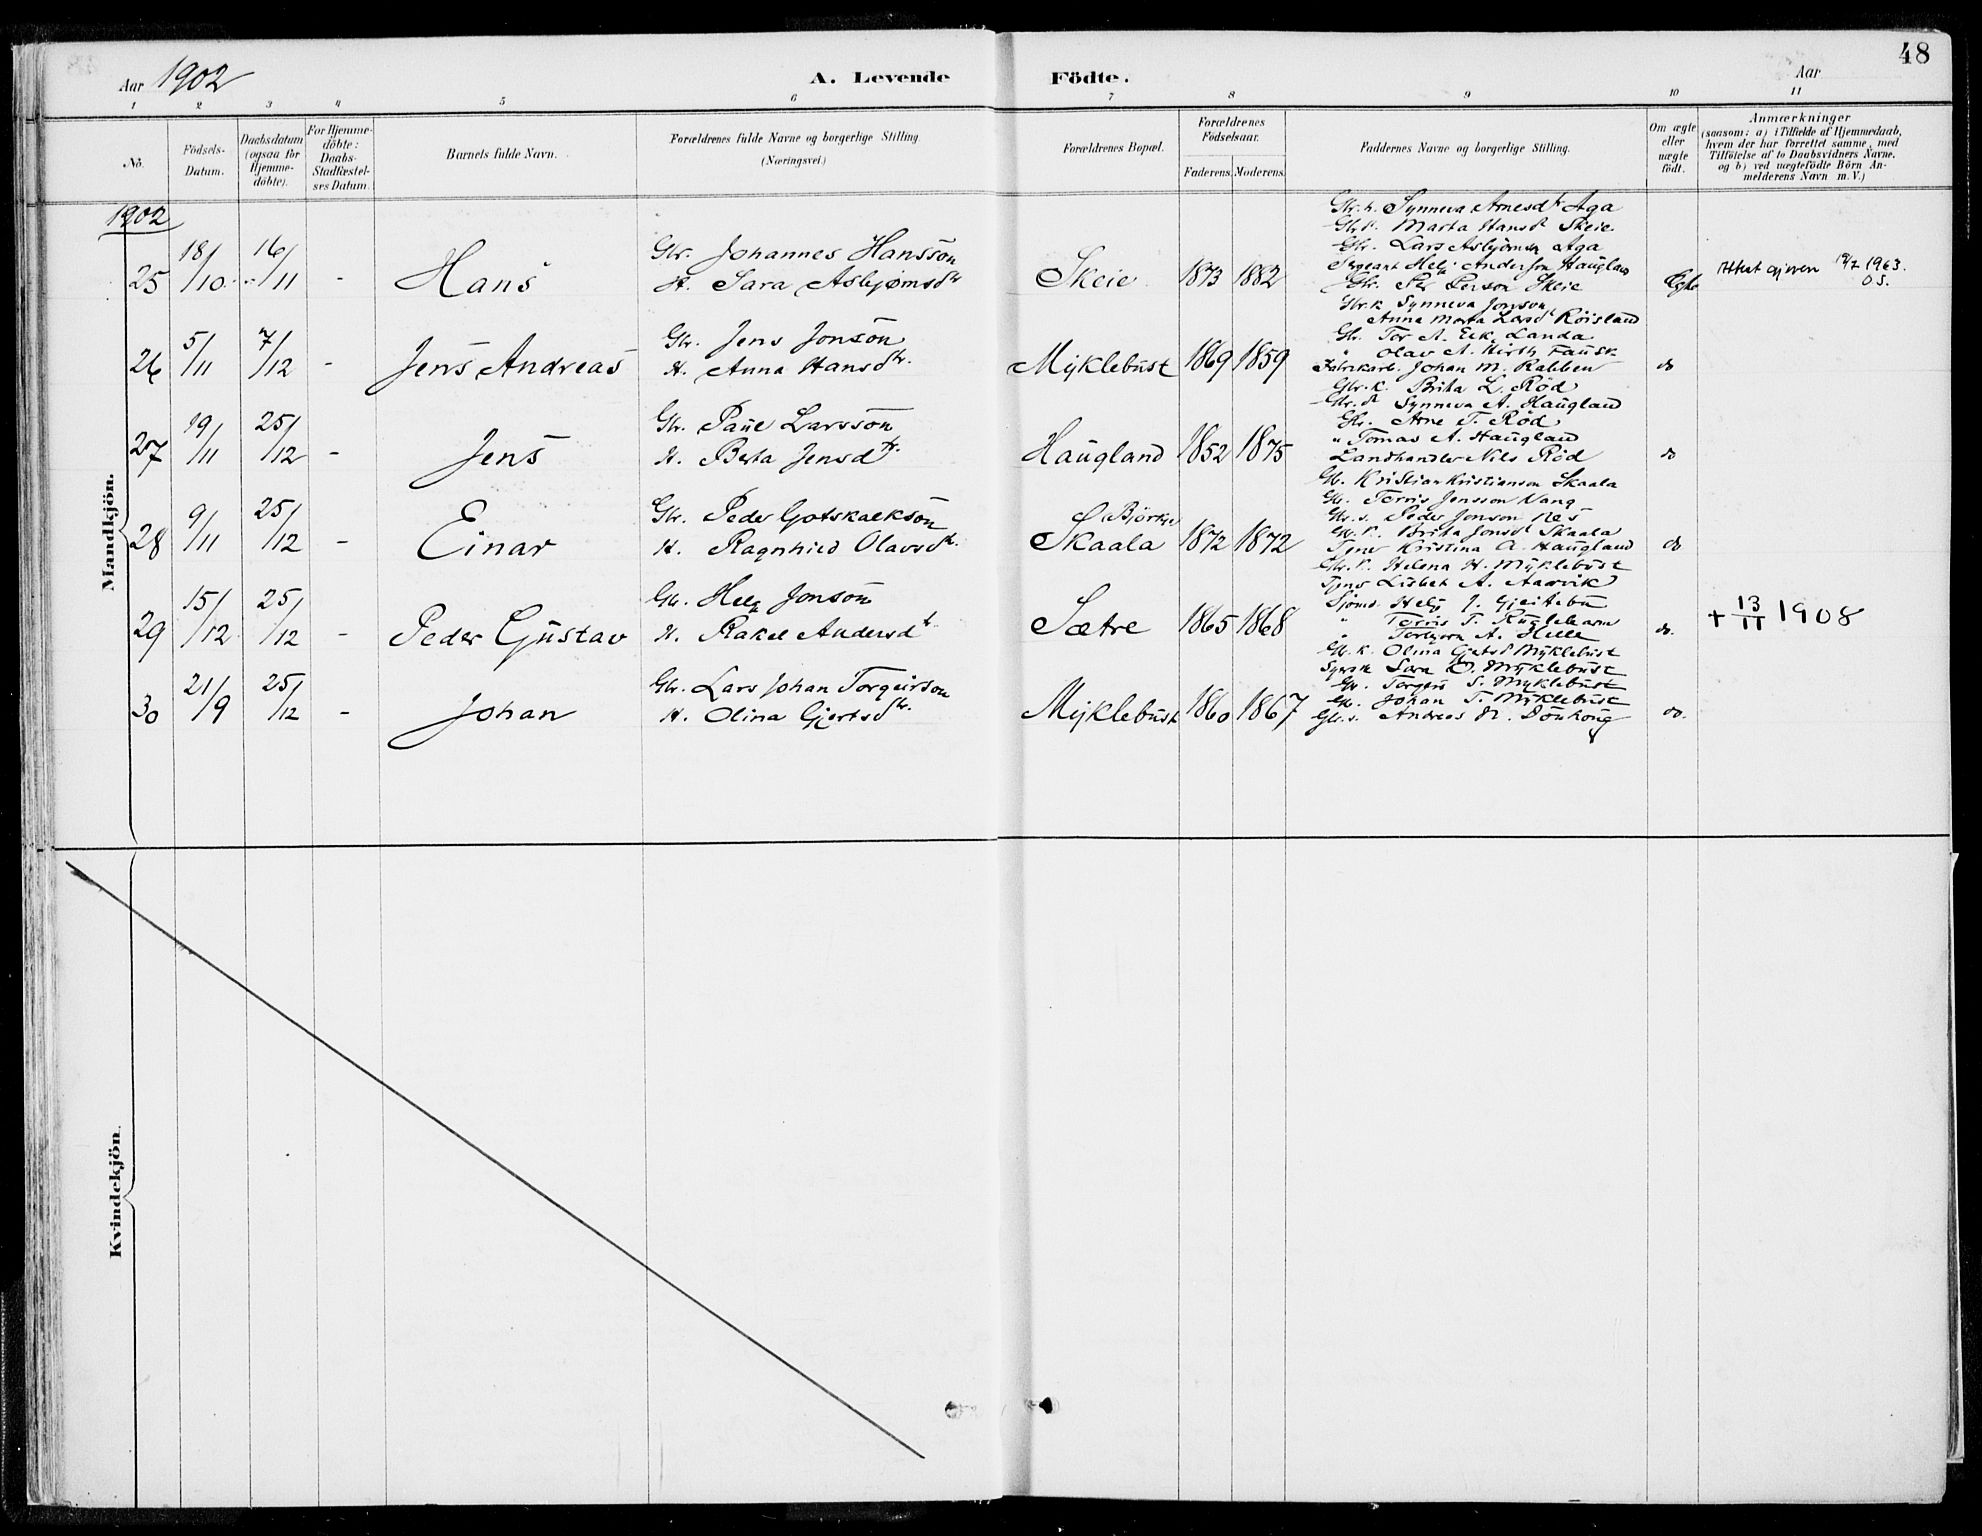 48
Aar 1902
A. Levende Födte.
Aar
1 2 3 4 5 6 7 8 9 10 11
No.
Födsels-Datum.
Daabsdatum (ogsaa for Hjemme-döbte).
For Hjemme-döbte: Daabs-Stadfæstel-ses Datum.
Barnets fulde Navn.
Forældrenes fulde Navne og borgerlige Stilling (Næringsvei.)
Forældrenes Bopæl.
Forældrenes Födselsaar.
Faderens. Moderens.
Faddernes Navne og borgerlige Stilling.
Om ægte eller uægte födt.
Anmærkninger
(saasom: a) i Tilfælde af Hjemmedaab, hvem der har forrettet samme, med Tilföielse af to Daabsvidners Navne, og b) ved uægtefödte Börn An-melderens Navn m. V.)
Mandkjön.
1902
25 18/10 16/11 - Hans
Gbr. Johannes Hansson
H. Sara Asbjörnsdtr
Skeie 1873 1882
Gbr. k. Synneva Arnesdtr Aga
Gbr. k. Marta Hansdtr Skeie
Gbr. Lars Asbjörnsn Aga
Sergeant Helge Anderson Haugland
Gbr. Per Person Skeie
Ægte
Attest gjeven 1963. O.S.
26 5/11 7/12 - Jens Andreas
Gbr. Jens Jonson
H. Anna Hansdtr.
Myklebust 1869 1859
Gbr. k. Synneva Jonson
Anna Marta Larsdtr Röisland
Gbr. Tor A. Eik, Landa
" Olav A. Hirth Fausk
Fabrikarb. Johan M. Rabben
do
27 19/11 25/12 - Jens
Gbr. Paul Larsson
H. Berta Jensdtr.
Haugland 1852 1875
Gbr. k. Brita L. Röd
Gbr. d. Synneva A. Haugland
Gbr. Arne T. Röd
" Tomas A. Haugland
Landhandler Nils Röd
do
28 9/11 25/12 - Einar
Gbr. Peder Gotskalkson
H. Ragnhild Olavsdtr.
Björke
Skaala 1872 1872
Gbr. Kristian Kristianson Skaala
Gbr. Torris Jensson Vang
Gbr. s. Peder Jonson Nes
Gbr. k. Brita Jonsdtr Skaala
Tjener Kristina A. Haugland
do
29 15/12 25/12 - Peder Gustav
Gbr. Helg Jonson
H. Rakel Andersdtr
Sætre 1865 1868
Gbr. k. Helena H. Myklebust
Tjens Lisbet A. Aarvik
Sjömd. Helge J. Gjeitebu
" Torris T.
" Torbjörn A. Helle
do.
+ 13/11 1908
30 21/9 25/12 - Johan
Gbr. Lars Johan Torgeirson
H. Olina Gjertsdtr.
Myklebust 1860 1867
Gbr. k. Olina Gjertsd Myklebust
Syersk Sara O. Myklebust
Gbr. Torgeir S. Myklebust
Gbr. Johan T. Myklebust
Gbr. s. Andreas N.
do.
Kvindekjön.